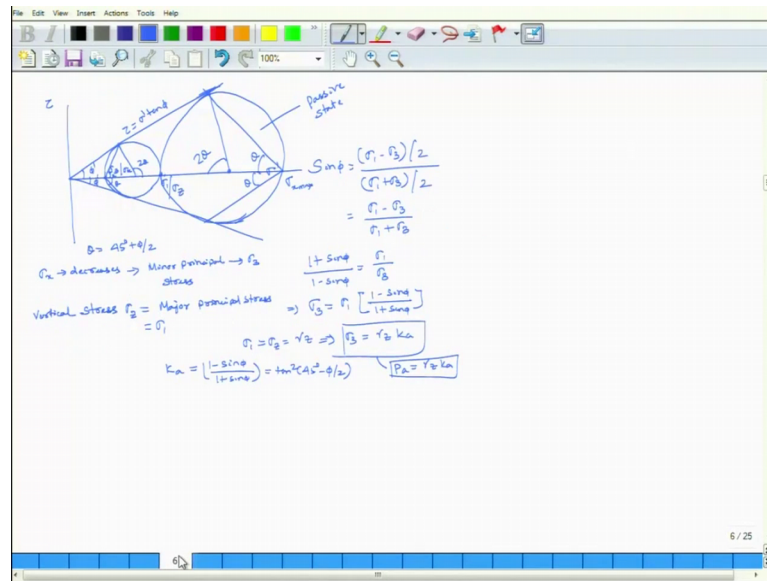 File Edit View Insert Actions Tools Help
B I
100%
τ
τ = σ' tanφ
Passive state
2θ
2θ
θ
θ
φ
φ
σ₁ σz
Sinφ = (σ₁ - σ₃)/2 / (σ₁ + σ₃)/2
= σ₁ - σ₃ / σ₁ + σ₃
θ = 45° + φ/2
σx → decreases → Minor principal → σ₃
stress
1 + sinφ / 1 - sinφ = σ₁ / σ₃
Vertical stress σz = Major principal stress
= σ₁
⇒ σ₃ = σ₁ [1 - sinφ / 1 + sinφ]
σ₁ = σz = γz ⇒ σ₃ = γz ka
Ka = (1 - sinφ / 1 + sinφ) = tan²(45° - φ/2)
Pa = γz ka
6 / 25
6